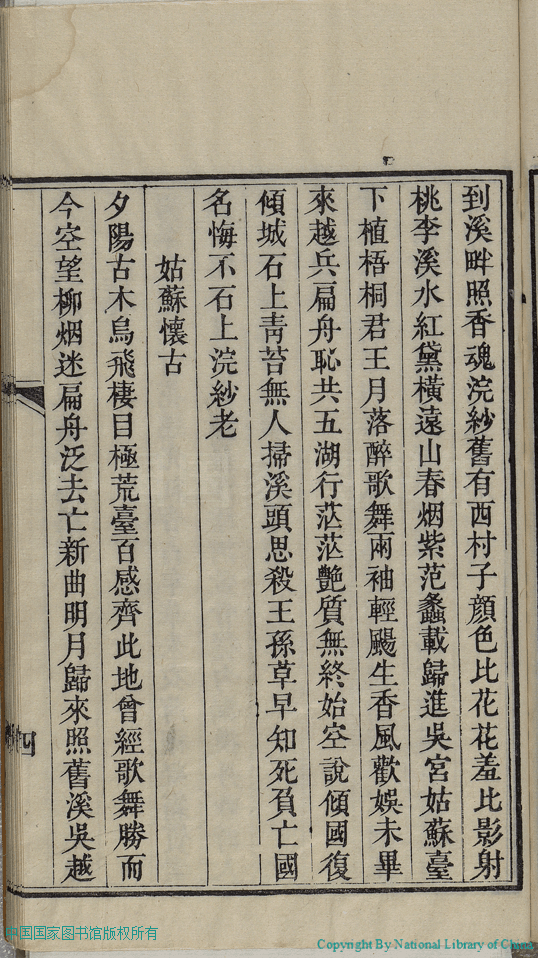 到溪畔照香魂浣紗舊有西村子顏色比花花羞比影射
桃李溪水紅黛橫遠山春烟紫范蠡載歸進吳宮姑蘇臺
下植梧桐君王月落醉歌舞兩袖輕颺生香風歡娛未畢
來越兵扁舟恥共五湖行茫茫艷質無終始空說傾國復
傾城石上靑苔無人掃溪頭思殺王孫草早知死負亡國
名悔不石上浣紗老
姑蘇懷古
夕陽古木烏飛棲目極荒臺百感齊此地曾經歌舞勝而
今空望柳烟迷扁舟泛去亡新曲明月歸來照舊溪吳越
四
中国国家图书馆版权所有
Copyright By National Library of China